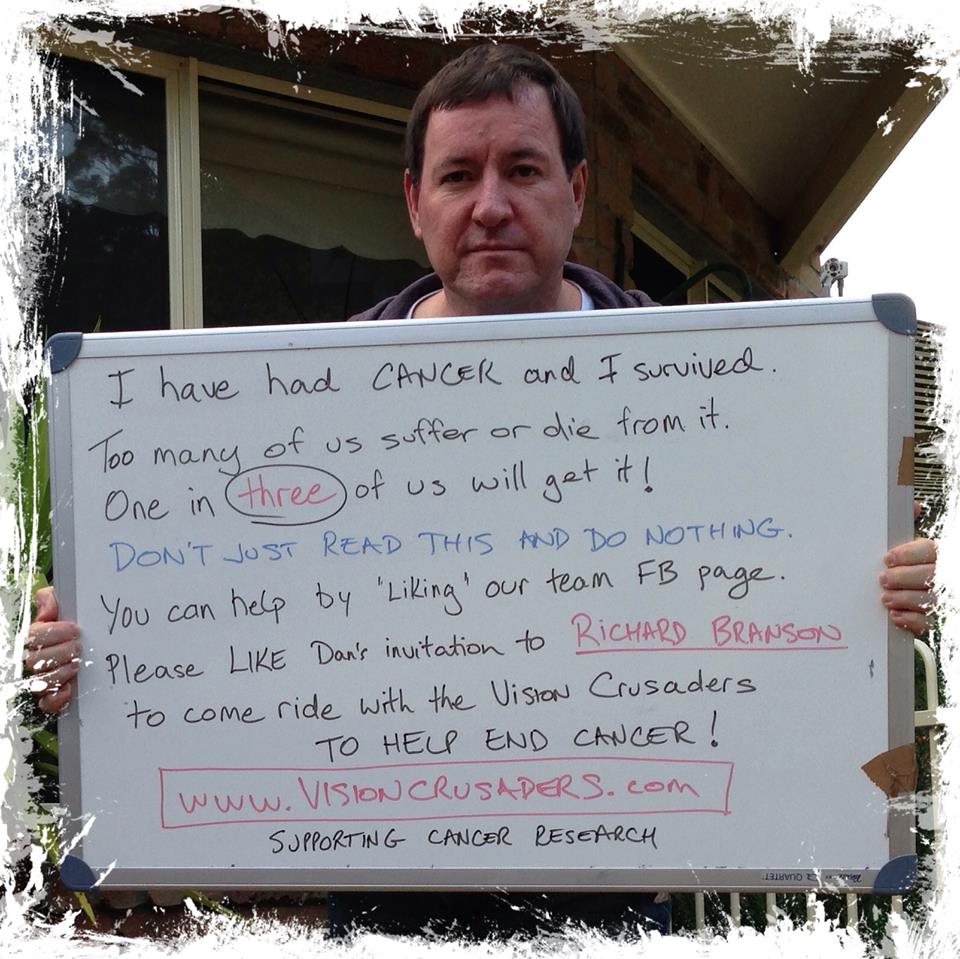 I have had CANCER and I survived.
Too many of us suffer or die from it.
One in three of us will get it!
DON'T JUST READ THIS AND DO NOTHING.
You can help by 'Liking' our team FB page.
Please LIKE Dan's invitation to RICHARD BRANSON
to come ride with the Vision Crusaders
TO HELP END CANCER!
www.VISIONCRUSADERS.com
SUPPORTING CANCER RESEARCH
QUARTET